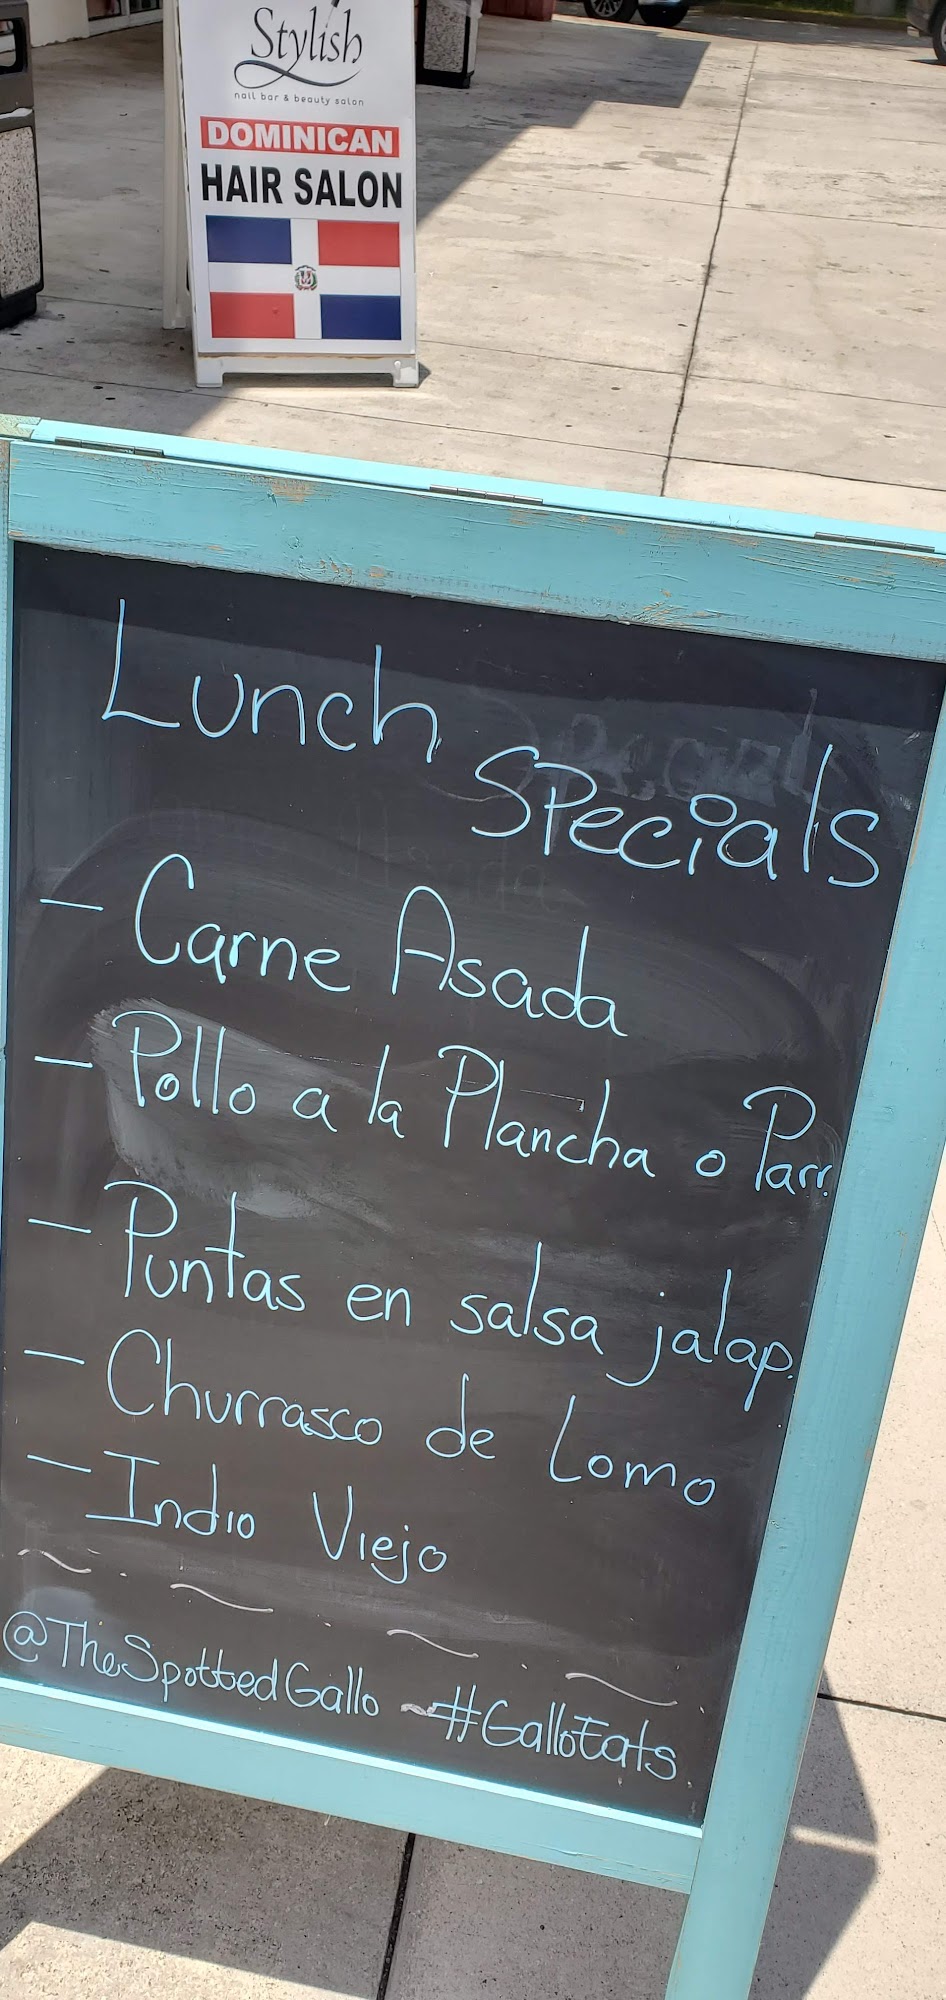 Stylish
nail bar & beauty salon
DOMINICAN
HAIR SALON
Lunch
Specials
- Carne Asada
- Pollo a la Plancha o Parr.
- Puntas en salsa jalap.
- Churrasco de Lomo
- Indio Viejo
@TheSpottedGallo ~ #GalloEats